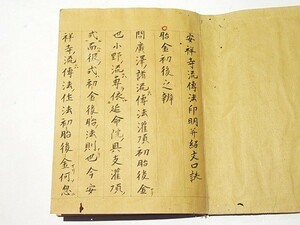 安祥寺流傳法印明并紹文口訣
胎金初後之辨
問廣澤諸流傳法灌頂初胎後金
也小野流專依延命院具支灌頂
式而彼式初金後胎法則也今安
祥寺流傳法住法初胎後金何忽